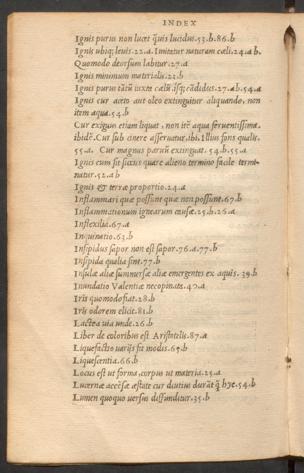 INDEX
Ignis purus non lucet q̃uis lucidus.53.b.86.b
Ignis ubiq; leuis.22.a. Imitatur naturam cæli.24.a b.
Quomodo deorsum labitur.27.a
Ignis minimum materialis.23.b
Ignis purus tãtũ iuxta cælũ ãsq; cãdidus.27.ab.54.a
Ignis cur aceto aut oleo extinguitur aliquando, non
item aqua.54.b
Cur exiguus etiam liquat, non itẽ aqua feruentissima.
ibidẽ. Cur sub cinere asseruatur, ibi. Illius fons qualis.
55.a. Cur magnus paruũ extinguat. 54.b.55.a
Ignis cum sit siccus quare alieno termino facile termi-
natur.52.ab
Ignis & terræ proportio.24.a
Inflammari quæ possunt quæ non possunt.67.b
Inflammationum ignearum causæ.25.b.26.a
Inflexilia.67.a
Inquinatio.63.b
Insipidus sapor non est sapor.76.a.77.b
Insipida qualia sint.77.b
Insulæ aliæ summersæ aliæ emergentes ex aquis.39.b
Inundatio Valentiæ necopinata.40.a
Iris quomodo fiat.28.b
Iris odorem elicit.81.b
Lactea uia unde.26.b
Liber de coloribus est Aristotelis.87.a
Liquefactio uarijs fit modis.65.b
Liquescentia.66.b
Locus est ut forma, corpus ut materia.25.a
Lucernæ accẽsæ æstate cur diutius durãt q̃ hye.54.b
Lumen quoquo uersus diffunditur.35.b